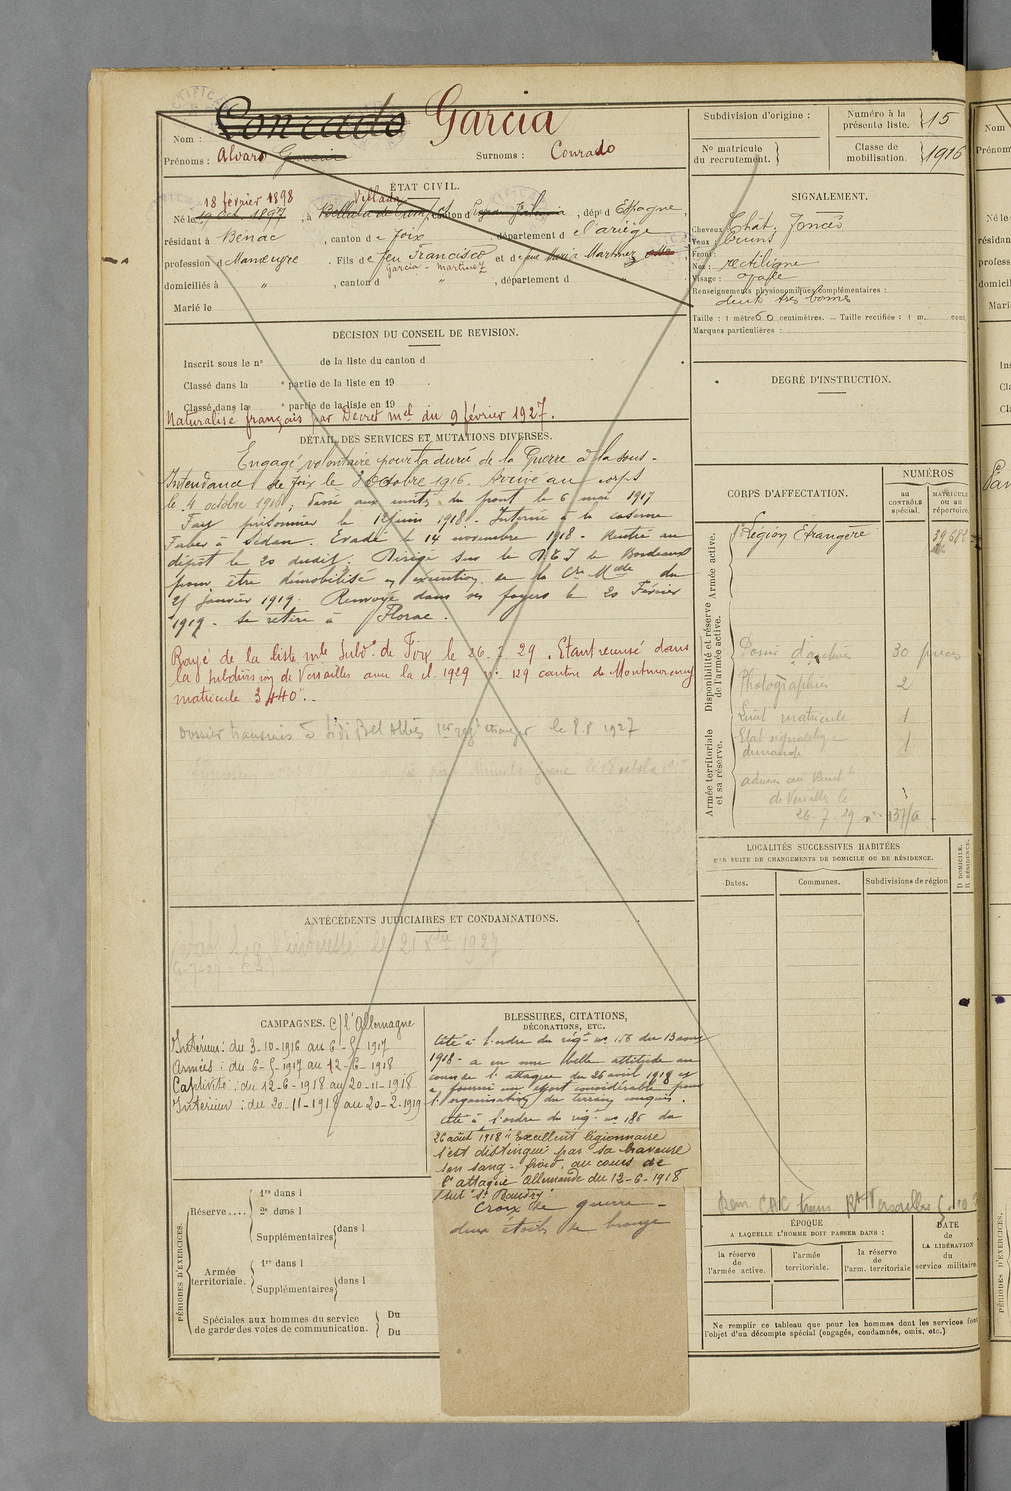 Nom : Conrado Garcia
Prénoms : Alvaro Garcia Surnoms : Conrado
ÉTAT CIVIL.
18 février 1898 Villada
Né le 19 Oct. 1897, à , canton d , dép<sup>t</sup> d Espagne,
résidant à Bénac, canton de Foix, département de l'ariège
profession d Manœuvre. Fils de feu Francisco et de feue Maria Martinez
Garcia - Martinez
domiciliés à " , canton d " , département d "
Marié le
DÉCISION DU CONSEIL DE REVISION.
Inscrit sous le n° de la liste du canton d
Classé dans la ° partie de la liste en 19 .
Classé dans la ° partie de la liste en 19
Naturalisé français par Décret m<sup>el</sup> du 9 février 1927.
DÉTAIL DES SERVICES ET MUTATIONS DIVERSES.
Engagé volontaire pour la durée de la Guerre à la sous-
Intendance de Foix le 3 Octobre 1916. Arrivé au corps
le 4 octobre 1916, Passé aux unités du front le 6 mai 1917
Fait prisonnier le 12 juin 1918. Interné à la caserne
Faber à Sédan. Evadé le 14 novembre 1918. Rentré au
dépôt le 20 dudit. Dirigé sur le D.E.I de Bordeaux
pour être démobilisé en exécution de la C<sup>re</sup> M<sup>elle</sup> du
25 janvier 1919. Renvoyé dans ses foyers le 20 Février
1919. Se retire à Florac.
Rayé de la liste m<sup>le</sup> Subd<sup>on</sup> de Foix le 26. 7. 29. Etant recensé dans
la subdivision de Versailles avec la cl. 1929 n° 129 canton de Montmorency
matricule 3440.
Dossier transmis à Sidi Bel Abbès 1<sup>er</sup> reg<sup>t</sup> étranger le 8.8 1927
ANTÉCÉDENTS JUDICIAIRES ET CONDAMNATIONS.
l'intéressé le 21 1927
CAMPAGNES. c/ l'Allemagne
Intérieur : du 3-10-1916 au 6-5-1917
Armées : du 6-5-1917 au 12-6-1918
Captivité : du 12-6-1918 au 20-11-1918
Intérieur : du 20-11-1918 au 20-2-1919
BLESSURES, CITATIONS,
DÉCORATIONS, ETC.
Cité à l'ordre du rég<sup>t</sup> n° 156 du 13 aout
1918 - a eu une belle attitude au
cours de l'attaque du 26 avril 1918 et
a fourni un effort considérable pour
l'organisation du terrain conquis.
Cité à l'ordre du rég<sup>t</sup> n° 186 du
26 août 1918 : Excellent légionnaire
s'est distingué par sa bravoure
son sang-froid, au cours de
l'attaque Allemande du 12-6-1918
Croix de guerre -
deux étoiles de bronze
PÉRIODES D'EXERCICES.
Réserve....
1<sup>re</sup> dans l
2<sup>e</sup> dans l
Supplémentaires dans l
Armée territoriale.
1<sup>re</sup> dans l
Supplémentaires dans l
Spéciales aux hommes du service
de garde des voies de communication.
Du
Du
Subdivision d'origine :
Numéro à la présente liste. 15
N° matricule du recrutement.
Classe de mobilisation. 1916
SIGNALEMENT.
Cheveux : Chât. foncés
Yeux : bruns
Front :
Nez : rectiligne
Visage : ovale
Renseignements physionomiques complémentaires :
deux très bonnes
Taille : 1 mètre 60 centimètres. — Taille rectifiée : 1 m. cent.
Marques particulières :
DEGRÉ D'INSTRUCTION.
CORPS D'AFFECTATION.
NUMÉROS
AU CONTRÔLE spécial.
MATRICULE ou au répertoire.
Armée active.
Légion Etrangère 39682
Disponibilité et réserve de l'armée active.
30 pièces
Photographies 2
Livret matricule 1
Etat signalétique 1
demande
Armée territoriale et sa réserve.
de Versailles le
26-7-29 n° 137/a
LOCALITÉS SUCCESSIVES HABITÉES
PAR SUITE DE CHANGEMENTS DE DOMICILE OU DE RÉSIDENCE.
Dates. Communes. Subdivisions de région D. DOMICILE. R. RÉSIDENCE.
ÉPOQUE
A LAQUELLE L'HOMME DOIT PASSER DANS :
la réserve de l'armée active.
l'armée territoriale.
la réserve de l'arm. territoriale
DATE de LA LIBÉRATION du service militaire
Ne remplir ce tableau que pour les hommes dont les services font
l'objet d'un décompte spécial (engagés, condamnés, omis, etc.)